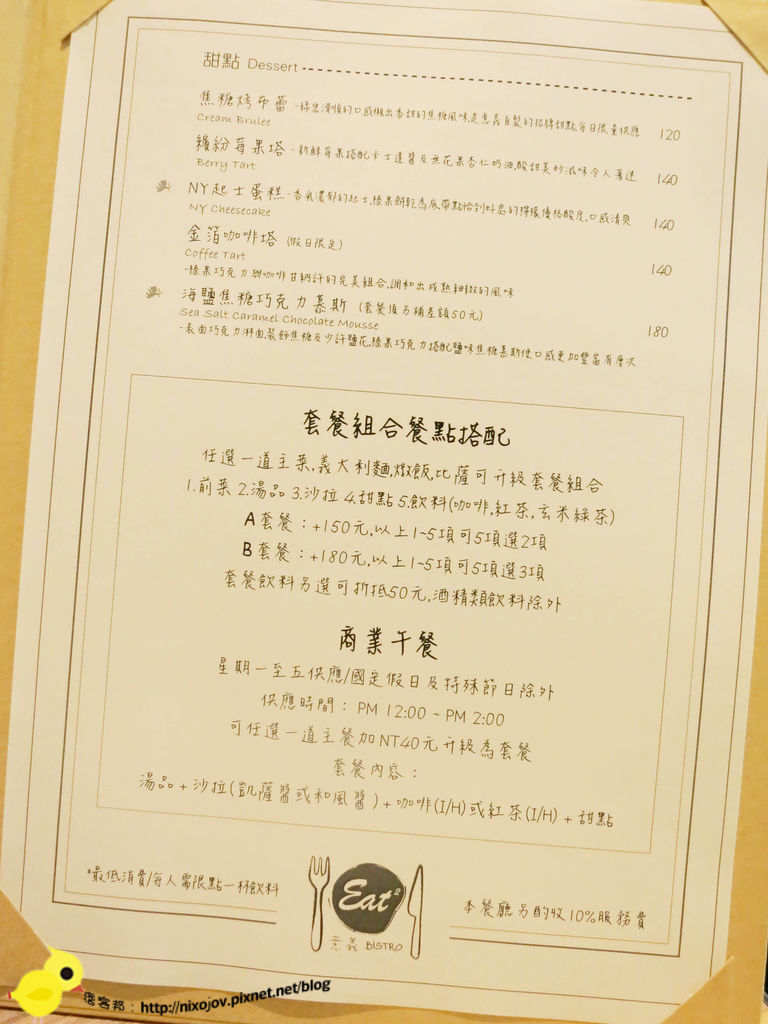 甜點 Dessert
焦糖烤布蕾 -綿密滑順的口感襯出香甜的焦糖風味,是意義自製的招牌甜點,每日限量供應 120
Cream Brulee
繽紛莓果塔 -新鮮莓果搭配卡士達醬及無花果杏仁奶油,酸甜美妙滋味令人著迷 140
Berry Tart
NY起士蛋糕 -香氣濃郁的起士,榛果餅乾為底,帶點恰到好處的檸檬優格酸度,口感清爽 140
NY Cheesecake
金箔咖啡塔 (假日限定) 140
Coffee Tart
-榛果巧克力與咖啡甘納許的完美組合,調和出成熟細緻的風味
海鹽焦糖巧克力慕斯 (套餐須另補差額50元) 180
Sea Salt Caramel Chocolate Mousse
-表面巧克力淋面,裝飾焦糖及少許鹽花,榛果巧克力搭配鹽味焦糖慕斯使口感更加豐富有層次
套餐組合餐點搭配
任選一道主菜,義大利麵,燉飯,比薩可升級套餐組合
1.前菜 2.湯品 3.沙拉 4.甜點 5.飲料(咖啡,紅茶,玄米綠茶)
A套餐：+150元,以上1~5項可5項選2項
B套餐：+180元,以上1~5項可5項選3項
套餐飲料另選可折抵50元,酒精類飲料除外
商業午餐
星期一至五供應/國定假日及特殊節日除外
供應時間： PM 12:00 ~ PM 2:00
可任選一道主餐加NT40元升級為套餐
套餐內容：
湯品 + 沙拉(凱薩醬或和風醬) + 咖啡(I/H)或紅茶(I/H) + 甜點
*最低消費/每人需限點一杯飲料
Eat²
意義 BISTRO
本餐廳另酌收10%服務費
痞客邦：http://nixojov.pixnet.net/blog